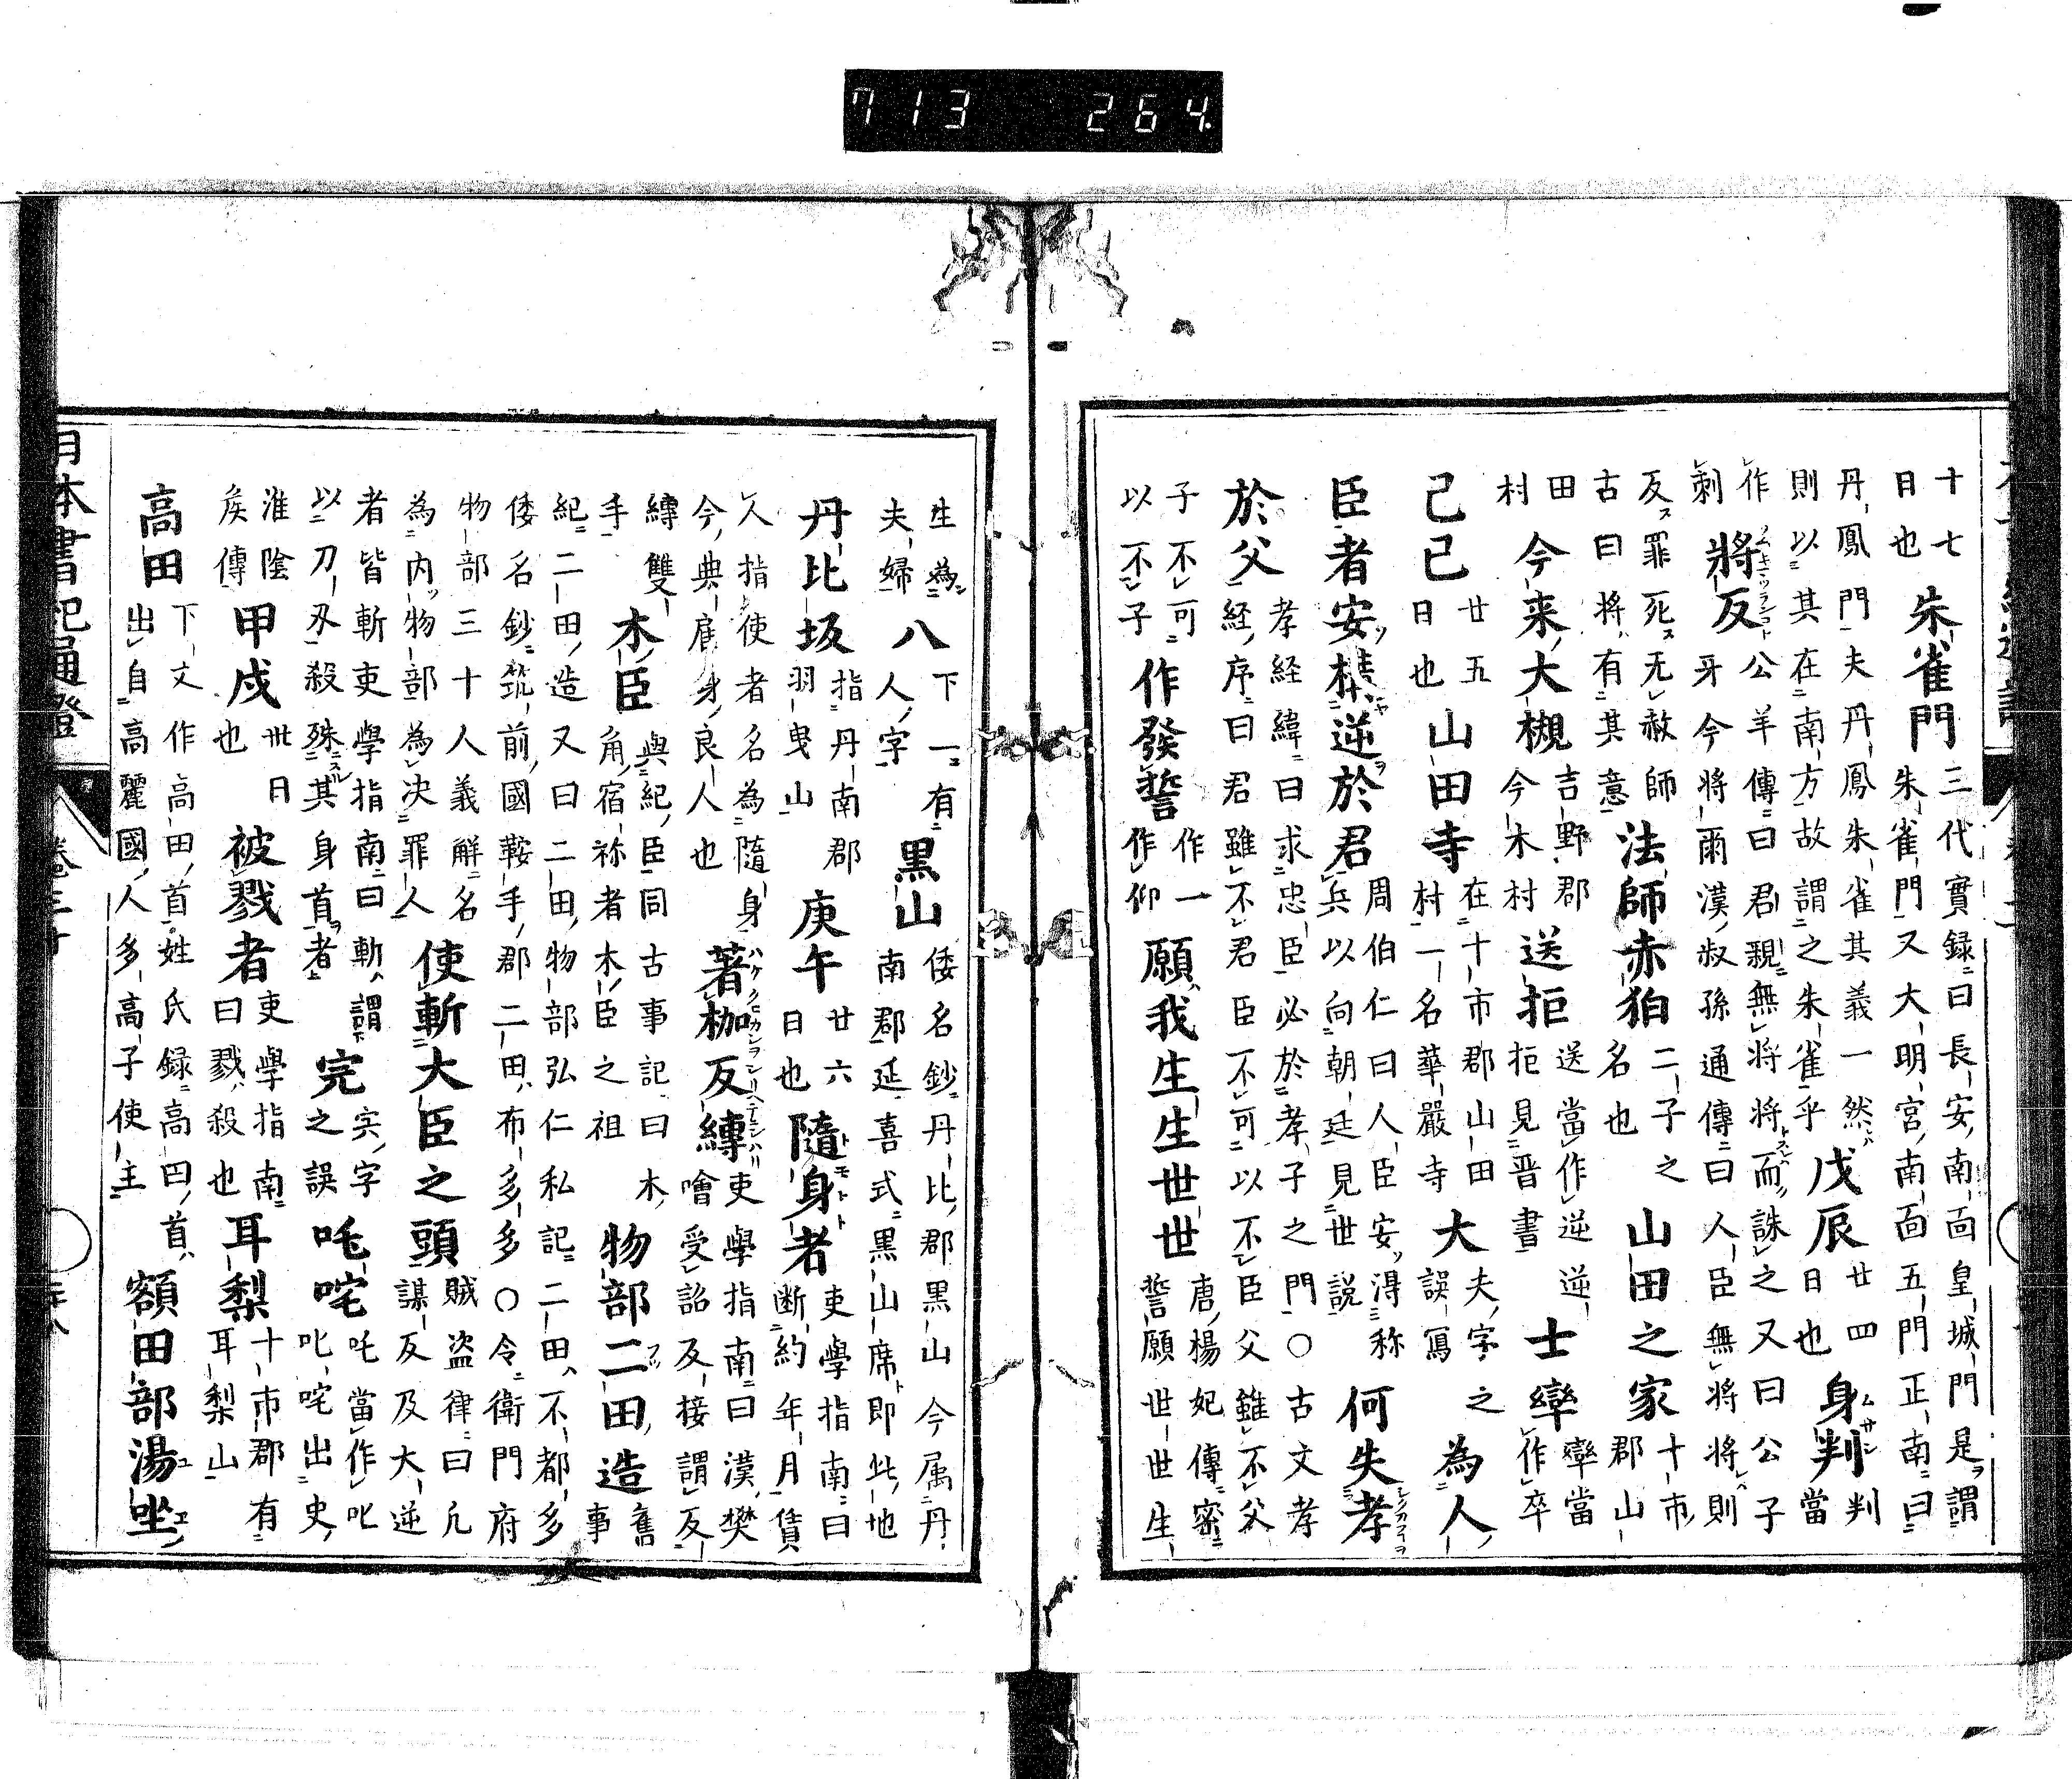 十七日也朱雀門三代實録曰長安南面皇城門是謂朱雀門又大明宮南面五門正南曰
丹鳳門夫丹鳳朱雀其義一然則以其在南方故謂之朱雀乎戊辰廿四日也身判判當
作剌將反公羊傳曰君親無将将而誅之又曰公子牙今将爾漢叔孫通傳曰人臣無将将則
反罪死无赦師古曰将有其意法師赤狛二子之名也山田之家十市郡山
田村今来大槻吉野郡今木村送拒送當作逆逆拒見晋書士卛卛當作卒
己巳廿五日也山田寺在十市郡山田村一名華嚴寺大夫字之誤寫為人
臣者安構逆於君周伯仁曰人臣安得称兵以向朝廷見世説何失孝
於父孝経緯曰求忠臣必於孝子之門○古文孝経序曰君雖不君臣不可以不臣父雖不父
子不可以不子作發誓作一作仰願我生生世世唐楊妃傳密誓願世世生
生為夫婦八下一有人字黒山倭名鈔丹比郡黒山今属丹南郡延喜式黒山席即此地
丹比坂指丹南郡羽曳山庚午廿六日也隨身者吏學指南曰断約年月賃
人指使者名為隨身今典雇身良人也著枷反縛吏學指南曰漢樊噲受詔反接謂反
縛雙手木臣與紀臣同古事記曰木角宿祢者木臣之祖物部二田造舊事
紀二田造又曰二田物部弘仁私記二田不都多倭名鈔筑前國鞍手郡二田布多多○令衛門府
物部三十人義觧名為内物部為决罪人使斬大臣之頭賊盗律曰凢謀反及大逆
者皆斬吏學指南曰斬謂以刀刄殺殊其身首者完宍字之誤吒咤吒當作叱叱咤出史
淮陰矦傳甲戍卅日也被戮者吏學指南曰戮殺也耳梨十市郡有耳梨山
高田下文作高田首姓氏録高田首出自高麗國人多高子使主額田部湯坐
日本書紀通證
713 264